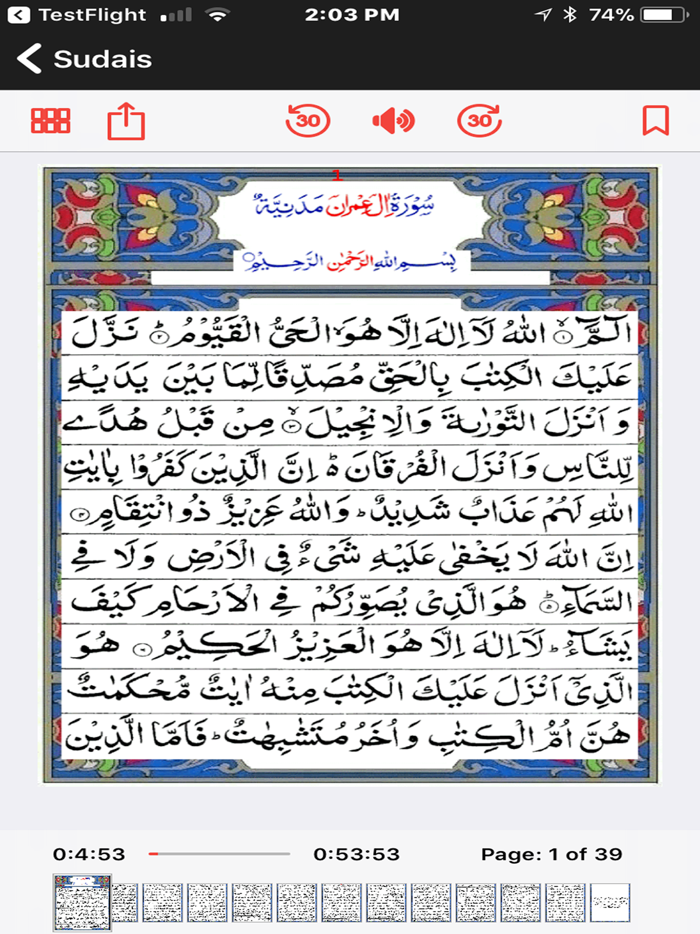 TestFlight 2:03 PM 74%
Sudais
30 30
1
سُوْرَةُ اٰلِ عِمْرٰنَ مَدَنِيَّةٌ
بِسْمِ اللهِ الرَّحْمٰنِ الرَّحِيْمِ
الٓمَّٓ ۙ﴿۱﴾ اللهُ لَاۤ اِلٰهَ اِلَّا هُوَ ۙ الْحَىُّ الْقَيُّوْمُ ؕ﴿۲﴾ نَزَّلَ
عَلَيْكَ الْكِتٰبَ بِالْحَقِّ مُصَدِّقًا لِّمَا بَيْنَ يَدَيْهِ
وَ اَنْزَلَ التَّوْرٰىةَ وَالْاِنْجِيْلَ ۙ﴿۳﴾ مِنْ قَبْلُ هُدًى
لِّلنَّاسِ وَ اَنْزَلَ الْفُرْقَانَ ؕ۬ اِنَّ الَّذِيْنَ كَفَرُوْا بِاٰيٰتِ
اللهِ لَهُمْ عَذَابٌ شَدِيْدٌ ؕ وَاللهُ عَزِيْزٌ ذُو انْتِقَامٍ ﴿۴﴾
اِنَّ اللهَ لَا يَخْفٰى عَلَيْهِ شَىْءٌ فِى الْاَرْضِ وَلَا فِى
السَّمَآءِ ؕ﴿۵﴾ هُوَ الَّذِىْ يُصَوِّرُكُمْ فِى الْاَرْحَامِ كَيْفَ
يَشَآءُ ؕ لَاۤ اِلٰهَ اِلَّا هُوَ الْعَزِيْزُ الْحَكِيْمُ ﴿۶﴾ هُوَ
الَّذِىْۤ اَنْزَلَ عَلَيْكَ الْكِتٰبَ مِنْهُ اٰيٰتٌ مُّحْكَمٰتٌ
هُنَّ اُمُّ الْكِتٰبِ وَ اُخَرُ مُتَشٰبِهٰتٌ ؕ فَاَمَّا الَّذِيْنَ
0:4:53 0:53:53 Page: 1 of 39